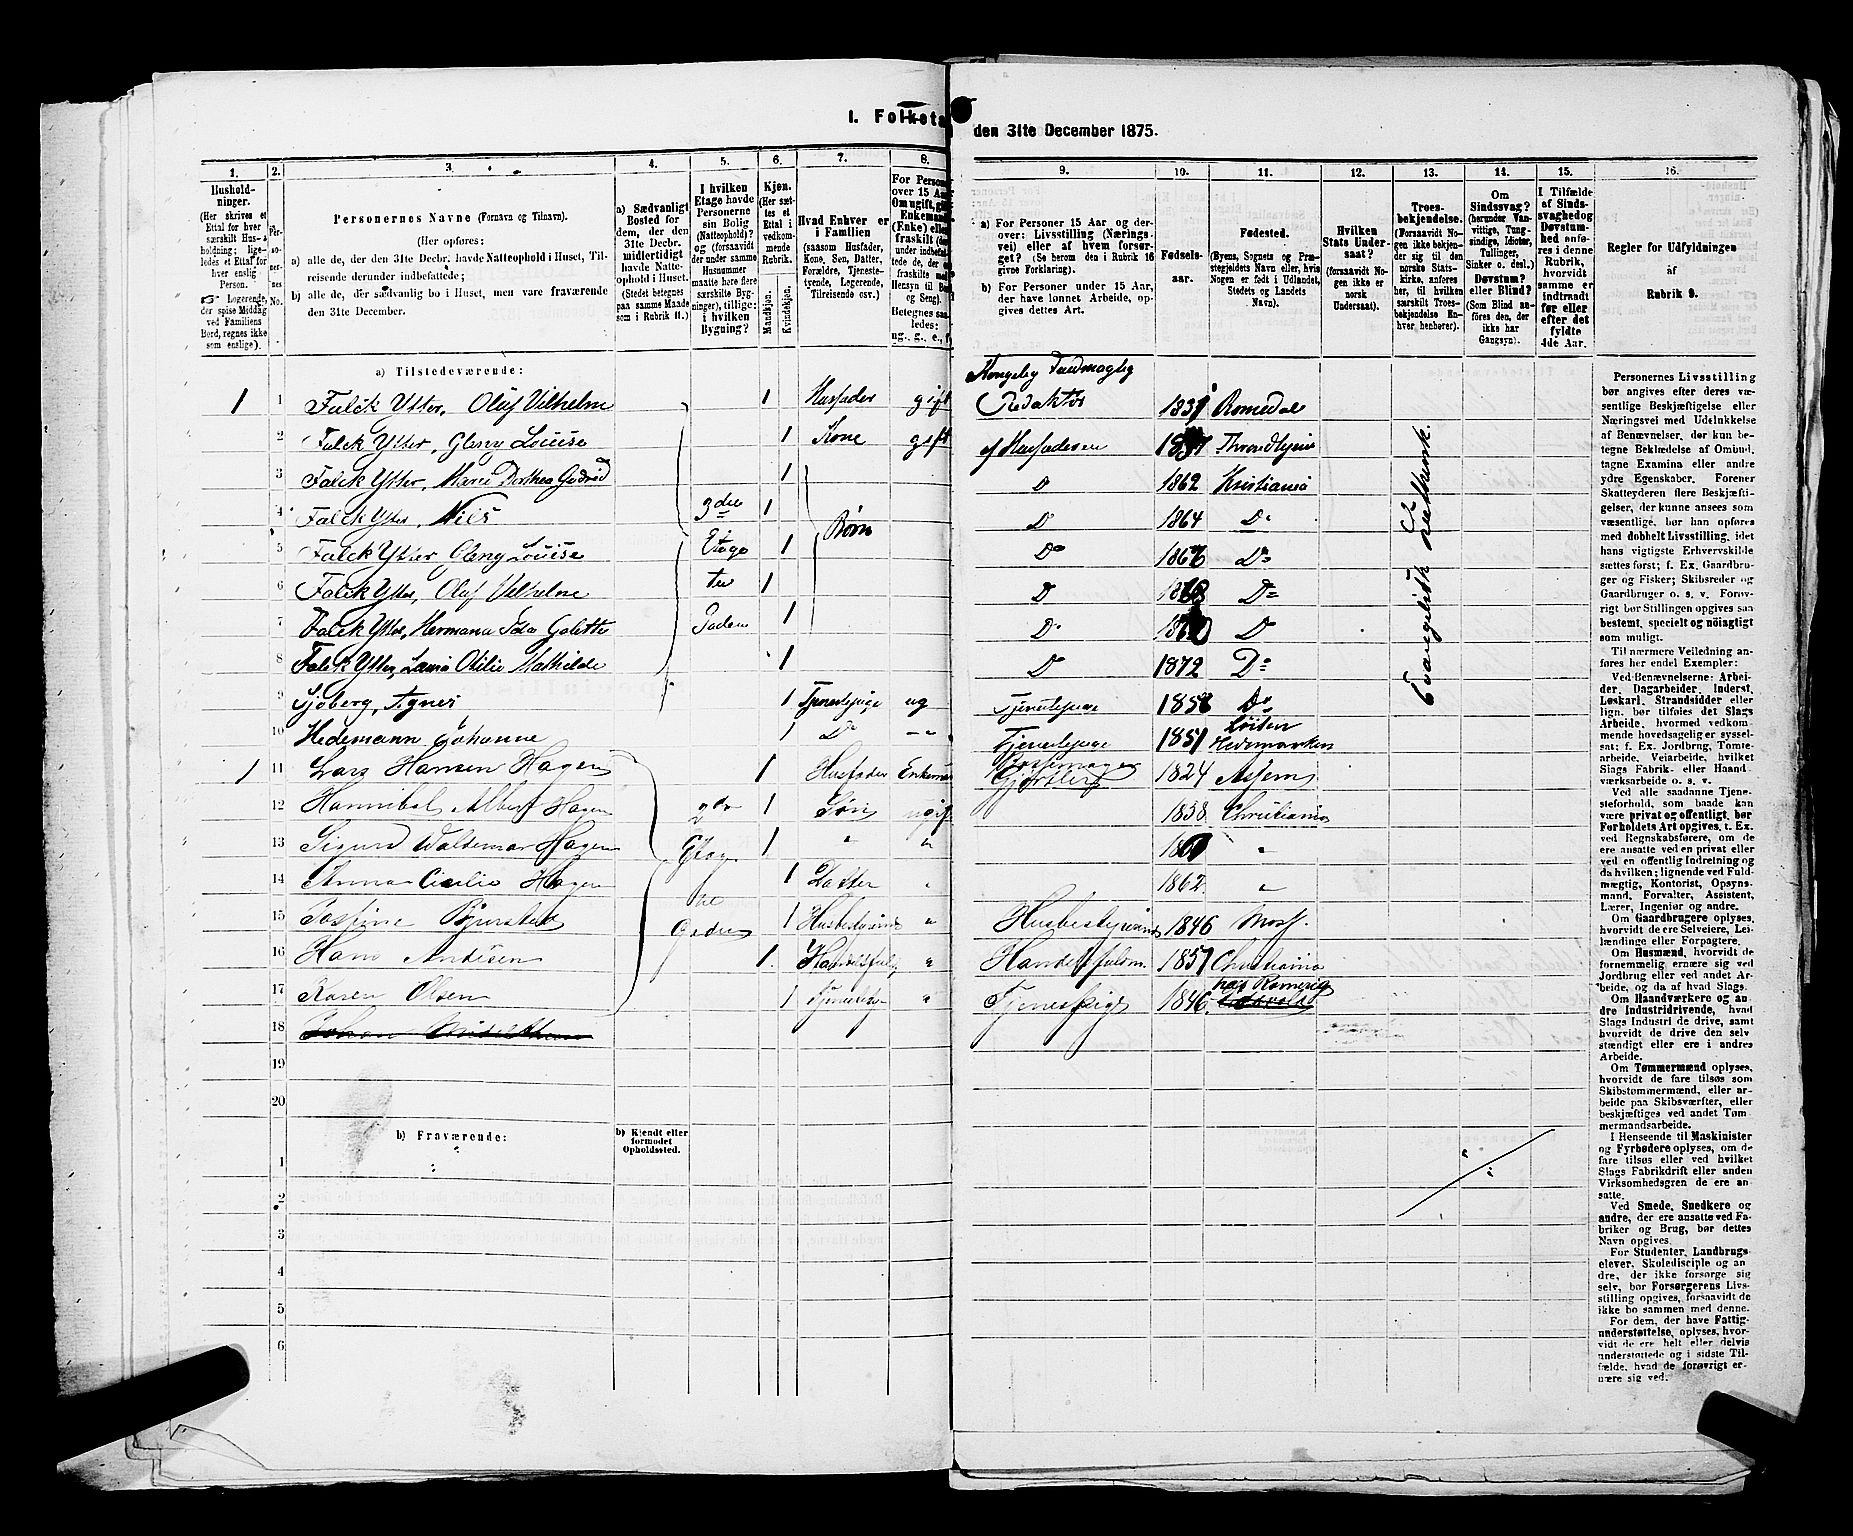 I. Folketæ
den 31te December 1875.
1.
2.
3.
4.
5.
6.
7.
8.
9.
10.
11.
12.
13.
14.
15.
16.
Hushold-
ninger.
(Her skrives et
Ettal for hver
særskilt Hus-
holdning; lige-
ledes et Ettal for
hver enslig
Person.
Logerende,
der spise Middag
ved Familiens
Bord, regnes ikke
som enslige).
Per-
soner-
nes
No.
Personernes Navne (Fornavn og Tilnavn).
(Her opføres:
a) alle de, der den 31te Decbr. havde Natteophold i Huset, Til-
reisende derunder indbefattede;
b) alle de, der sædvanlig bo i Huset, men vare fraværende
den 31te December.
a) Sædvanligt
Bosted for
dem, der den
31te Decbr.
midlertidigt
havde Natte-
ophold i Huset.
(Stedet betegnes
paa samme Maade
som i Rubrik 11.)
I hvilken
Etage havde
Personerne
sin Bolig
(Natteophold)?
og (forsaavidt
der under samme
Husnummer
maatte høre flere
særskilte Byg-
ninger), tillige:
i hvilken
Bygning?
Kjøn.
(Her sæt-
tes et
Ettal i
vedkom-
mende
Rubrik.
Mandkjøn.
Kvindekjøn.
Hvad Enhver er
i Familien
(saasom Husfader,
Kone, Søn, Datter,
Forældre, Tjeneste-
tyende, Logerende,
Tilreisende osv.)
For Person
over 15 Aar
Om ugift, gi
Enkeman
(Enke) elle
fraskilt (de
under indbefa
tede de, der e
fraskilte me
Hensyn til Bo
og Seng).
Betegnes saa
ledes:
ug., g., e., f.
a) For Personer 15 Aar og der-
over: Livsstilling (Nærings-
vei) eller af hvem forsør-
get? (Se herom den i Rubrik 16
givne Forklaring).
b) For Personer under 15 Aar,
der have lønnet Arbeide, op-
gives dettes Art.
Fødsels-
aar.
Fødested.
(Byens, Sognets og Præ-
stegjeldets Navn eller, hvis
Nogen er født i Udlandet,
Stedets og Landets
Navn).
Hvilken
Stats Under-
saat?
(forsaavidt No-
gen ikke er
norsk
Undersaat).
Troes-
bekjendelse.
(Forsaavidt No-
gen ikke bekjen-
der sig til den
norske Stats-
kirke, anføres
her, til hvilken
særskilt Troes-
bekjendelse En-
hver henhører).
Om
Sindssvag?
(herunder Van-
vittige, Tung-
sindige, Idioter,
Tullinger,
Sinker o. desl.)
Døvstum?
eller Blind?
(Som Blind an-
føres den, der
ikke har
Gangsyn).
I Tilfælde
af Sinds-
svaghed og
Døvstum-
hed anfø-
res i denne
Rubrik,
hvorvidt
samme er
indtraadt
før eller
efter det
fyldte
4de Aar.
Regler for Udfyldningen
af
Rubrik 9.
a) Tilstedeværende:
Kongelig Fuldmægtig
1 1 Falck Ytter, Oluf Vilhelm 1 Husfader gift Redaktør 1831 Romedal
2 Falck Ytter, Oleny Louise 1 Kone gift af Husfaderen Throndhjem
3 Falck Ytter, Marie Dorthea Gudrid 1 D 1862 Kristiania
4 Falck Ytter, Nils 3die 1 Børn D 1864 Do
5 Falck Ytter Oleny Louise Etage 1 Do Do
6 Falck Ytter, Oluf Vilhelm til 1 D Do
7 Falck Ytter, Hermana Ida Galette Gaden 1 D D
8 Falck Ytter, Laura Otilie Mathilde 1 D 1872 Do
9 Sjøberg, Agnes 1 Tjenestepige ug Tjenestepige Do
10 Hedemann Johanne 1 Do Tjenestepige 1851 Løiten Hedemarken
1 11 Lars Hansen Hagen 1 Husfader Enkem Gjørtler 1824
12 Hannibal Albert Hagen 2den 1 Søn ugift 1838. Christiania
13 Sigurd Waldemar Hagen Etage 1 " " "
14 Anna Cicilie Hagen 1 Datter " 1862. "
15 Jostine til 1 Husbestyrerinde " Husbestyrerinde 1846 Moss.
16 Hans Andisen Gaden 1 " Handelsfuldm. 1857 Christiania
17 Karen Olsen 1 " Tjenestepige 1846 Romerig
18
19
20
Evangelisk Luthersk.
b) Fraværende:
b) Kjendt eller
formodet
Opholdssted.
1
2
3
4
5
6
Personernes Livsstilling
bør angives efter deres væ-
sentlige Beskjæftigelse eller
Næringsvei med Udelukkelse
af Benævnelser, der kun be-
tegne Beklædelse af Ombud,
tagne Examina eller andre
ydre Egenskaber. Forener
Skatteyderen flere Beskjæfti-
gelser, der kunne ansees som
væsentlige, bør han opføres
med dobbelt Livsstilling, idet
hans vigtigste Erhvervskilde
sættes først; f. Ex. Gaardbru-
ger og Fisker; Skibsreder og
Gaardbruger o. s. v. Forøv-
rigt bør Stillingen opgives saa
bestemt, specielt og nøiagtigt
som muligt.
Til nærmere Veiledning an-
føres her endel Exempler:
Ved Benævnelserne: Arbei-
der, Dagarbeider, Inderst,
Løskarl, Strandsidder eller
lign. bør tilføies det Slags
Arbeide, hvormed vedkom-
mende hovedsagelig er syssel-
sat; f. Ex. Jordbrug, Tomte-
arbeide, Veiarbeide, hvilket
Slags Fabrik- eller Haand-
værksarbeide o. s. v.
Ved alle saadanne Tjene-
steforhold, som baade kan
være privat og offentligt, bør
Forholdets Art opgives, t. Ex.
ved Regnskabsførere, om de
ere ansatte ved en privat eller
ved en offentlig Indretning og
da hvilken; lignende ved Fuld-
mægtig, Kontorist, Opsyns-
mand, Forvalter, Assistent,
Lærer, Ingeniør og andre.
Om Gaardbrugere oplyses,
hvorvidt de ere Selveiere, Lei-
lændinge eller Forpagtere.
Om Husmænd, hvorvidt de
fornemmelig ernære sig ved
Jordbrug eller ved andet Ar-
beide, og da af hvad Slags.
Om Haandværkere og an-
dre Industridrivende, hvad
Slags Industri de drive, samt
hvorvidt de drive den selv-
stændigt eller ere i andres
Arbeide.
Om Tømmermænd oplyses,
hvorvidt de fare tilsøs som
Skibstømmermænd, eller ar-
beide paa Skibsværfter, eller
beskjæftiges ved andet Tøm-
mermandsarbeide.
I Henseende til Maskinister
og Fyrbødere oplyses, om de
fare tilsøs eller ved hvilket
Slags Fabrikdrift eller anden
Virksomhedsgren de ere an-
satte.
Ved Smede, Snedkere og
andre, der ere ansatte ved Fa-
briker og Brug, bør dettes
Navn opgives.
For Studenter, Landbrugs-
elever, Skoledisciple og an-
dre, der ikke forsørge sig
selv, bør Forsørgerens Livs-
stilling opgives, forsaavidt de
ikke bo sammen med denne.
For dem, der have Fattig-
understøttelse, oplyses, hvor-
vidt de ere helt eller delvis
understøttede og i sidste Til-
fælde, hvad de forøvrigt er-
nære sig ved.